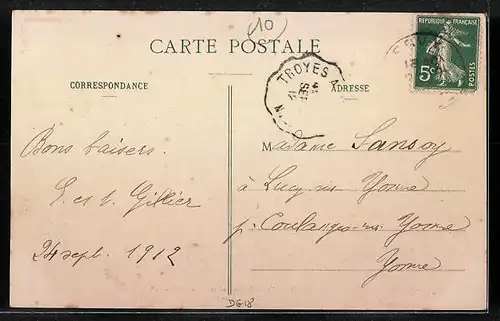 (10)
CARTE POSTALE
REPUBLIQUE FRANÇAISE
5c
POSTES
TROYES A
CORRESPONDANCE
ADRESSE
Bons baisers.
24 sept. 1912
Madame Sansoy
à Lucy sur Yonne
p. Coulanges-sur Yonne
Yonne
DG18